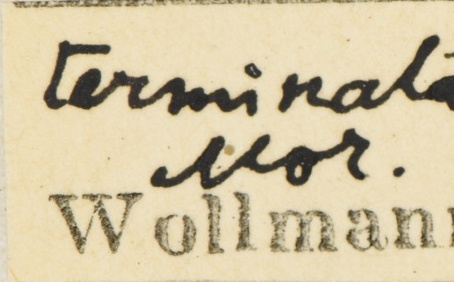 terminata
Mor.
Wollmann